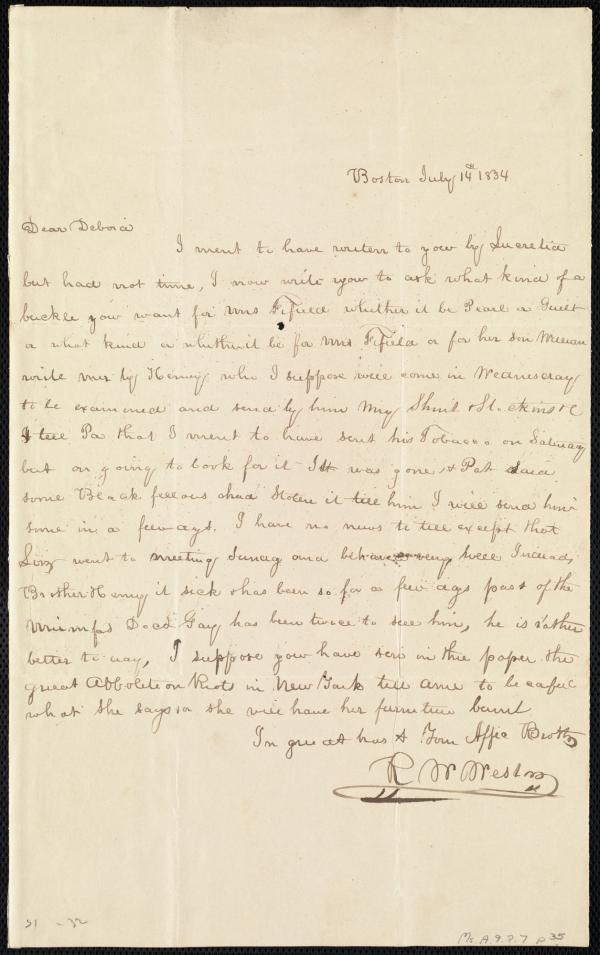 Boston July 14th 1834
Dear Debora
I ment to have writen to yow by Lucretia
but had not time, I now write yow to ask what kind of a
buckle yow want for Mrs Fifield whether it be Pearl or Guilt
or what kind or whether it be for Mrs Fifield or for her Son William
write me by Henry who I suppose will come in Wednesday
to be examined and send by him my Shirt & Stockins &C
tell Pa that I ment to have sent his Tobacco on Saturday
but on going to look for it It was gone & Pat said
some Black fellows had Stolen it tell him I will send him
some in a few days. I have no news to tell except that
went to meeting Sunday and behaved very well Indeed,
Brother Henry it sick & has been so for a few days past of the
Docd Gay has been twice to see him, he is rather
better to day, I suppose yow have seen in the paper the
great Abbolition Riots in New York tell Anne to be carful
what She says or she will have her furniture burnt
In great has t Your Affec Brother
R W Weston
51 - 32
Ms. A. 9. 2. 7 p 35